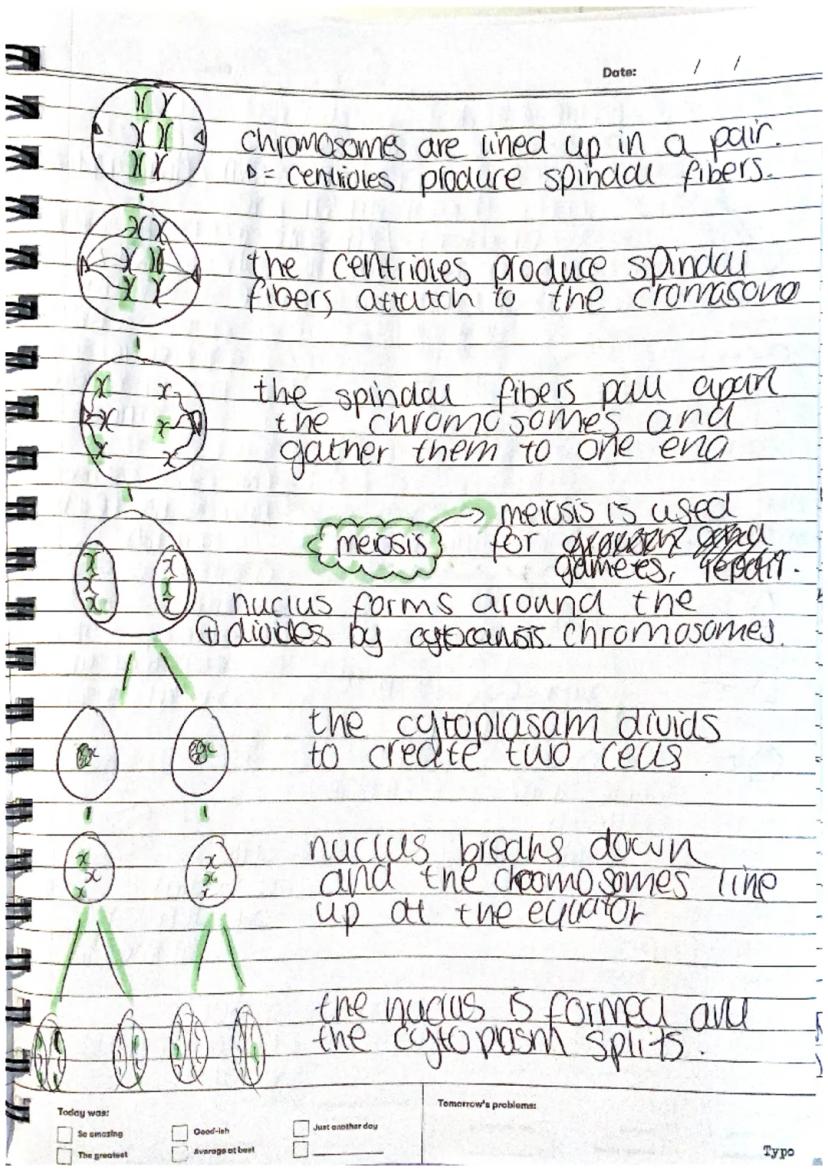 Date: / /
chromosomes are lined up in a pair.
▷ = centrioles produce spindal fibers.
the centrioles produce spindal
fibers attatch to the cromasone
the spindal fibers pull apart
the chromosomes and
gather them to one end
meiosis → meiosis is used
for
gametes, repair.
nuclus forms around the
⊕ divides by cytocanisis. chromosomes.
the cytoplasam divids
to create two cells
nuclus breaks down
and the chromosomes line
up at the equator
the nuclus is formed and
the cytoplasm splits.
Today was:
So amazing
Good-ish
Just another day
The greatest
Average at best
Tomorrow's problems:
Typo